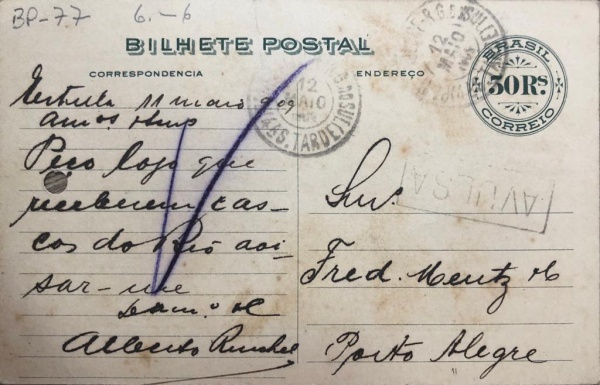 BP-77
6.-6
BILHETE POSTAL
CORRESPONDENCIA
ENDEREÇO
BRASIL
50 RS.
CORREIO
12
MAIO
12
MAIO
4ªS. TARDE
AVULSA
Estrella 11 maio 909
Amos. Snrs
Peço logo que
receberem cas-
cos do Rio avi-
sar-me
Alberto
Snrs.
Fred. Mentz &C
Porto Alegre